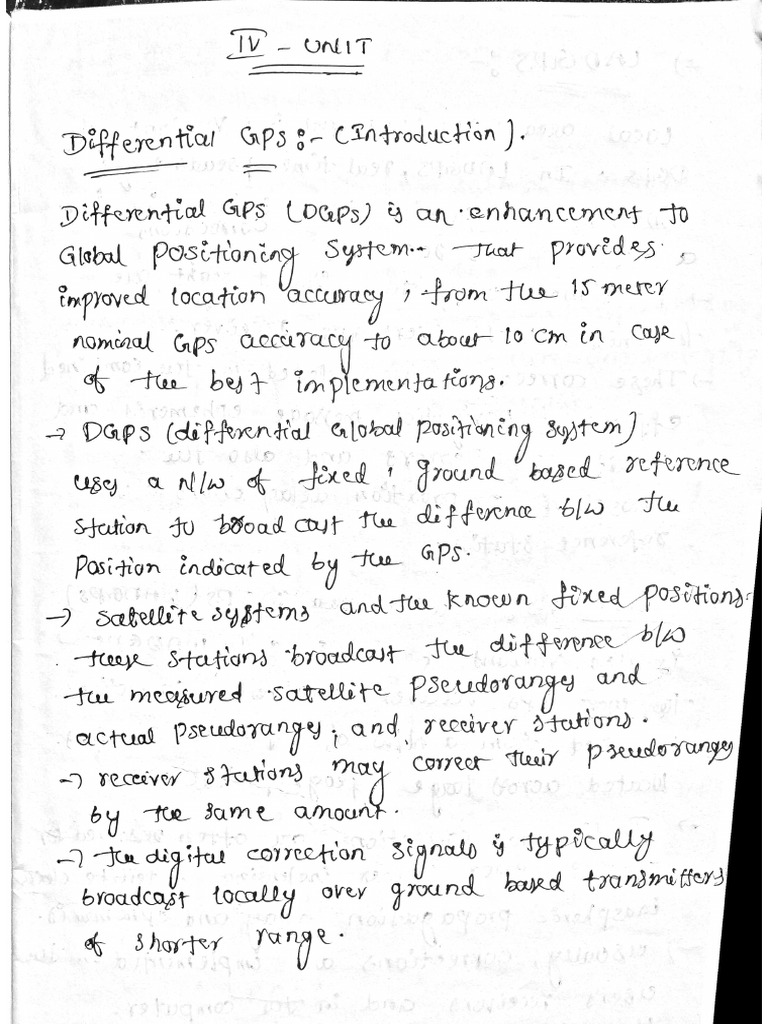 IV - UNIT
Differential GPS :- (Introduction).
Differential GPS (DGPS) is an enhancement to
Global Positioning System.- that provides
improved location accuracy, from the 15 meter
nominal GPS accuracy to about 10 cm in case
of the best implementations.
→ DGPS (differential Global positioning system)
uses a N/W of fixed, ground based reference
station to broadcast the difference b/w the
position indicated by the GPS.
→ satellite systems and the known fixed positions.
these stations broadcast the difference b/w
the measured satellite pseudoranges and
actual pseudoranges, and receiver stations.
→ receiver stations may correct their pseudoranges
by the same amount.
→ the digital correction signals is typically
broadcast locally over ground based transmitters
of shorter range.